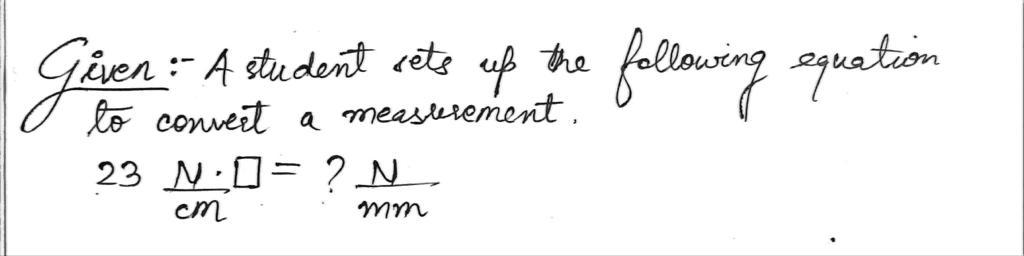 Given :- A student sets up the following equation
to convert a measurement.
23 N/cm · □ = ? N/mm